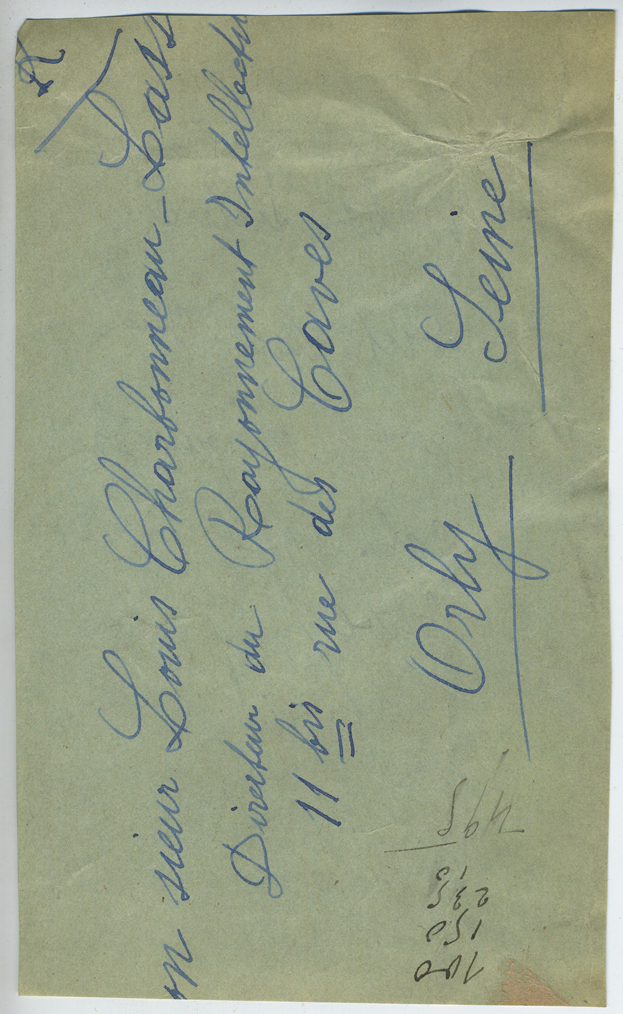 on sieur Louis Charbonneau-Lass
Directeur du Rayonnement Intellectu
11 bis rue des Caves
Orly Seine
100
150
235
495